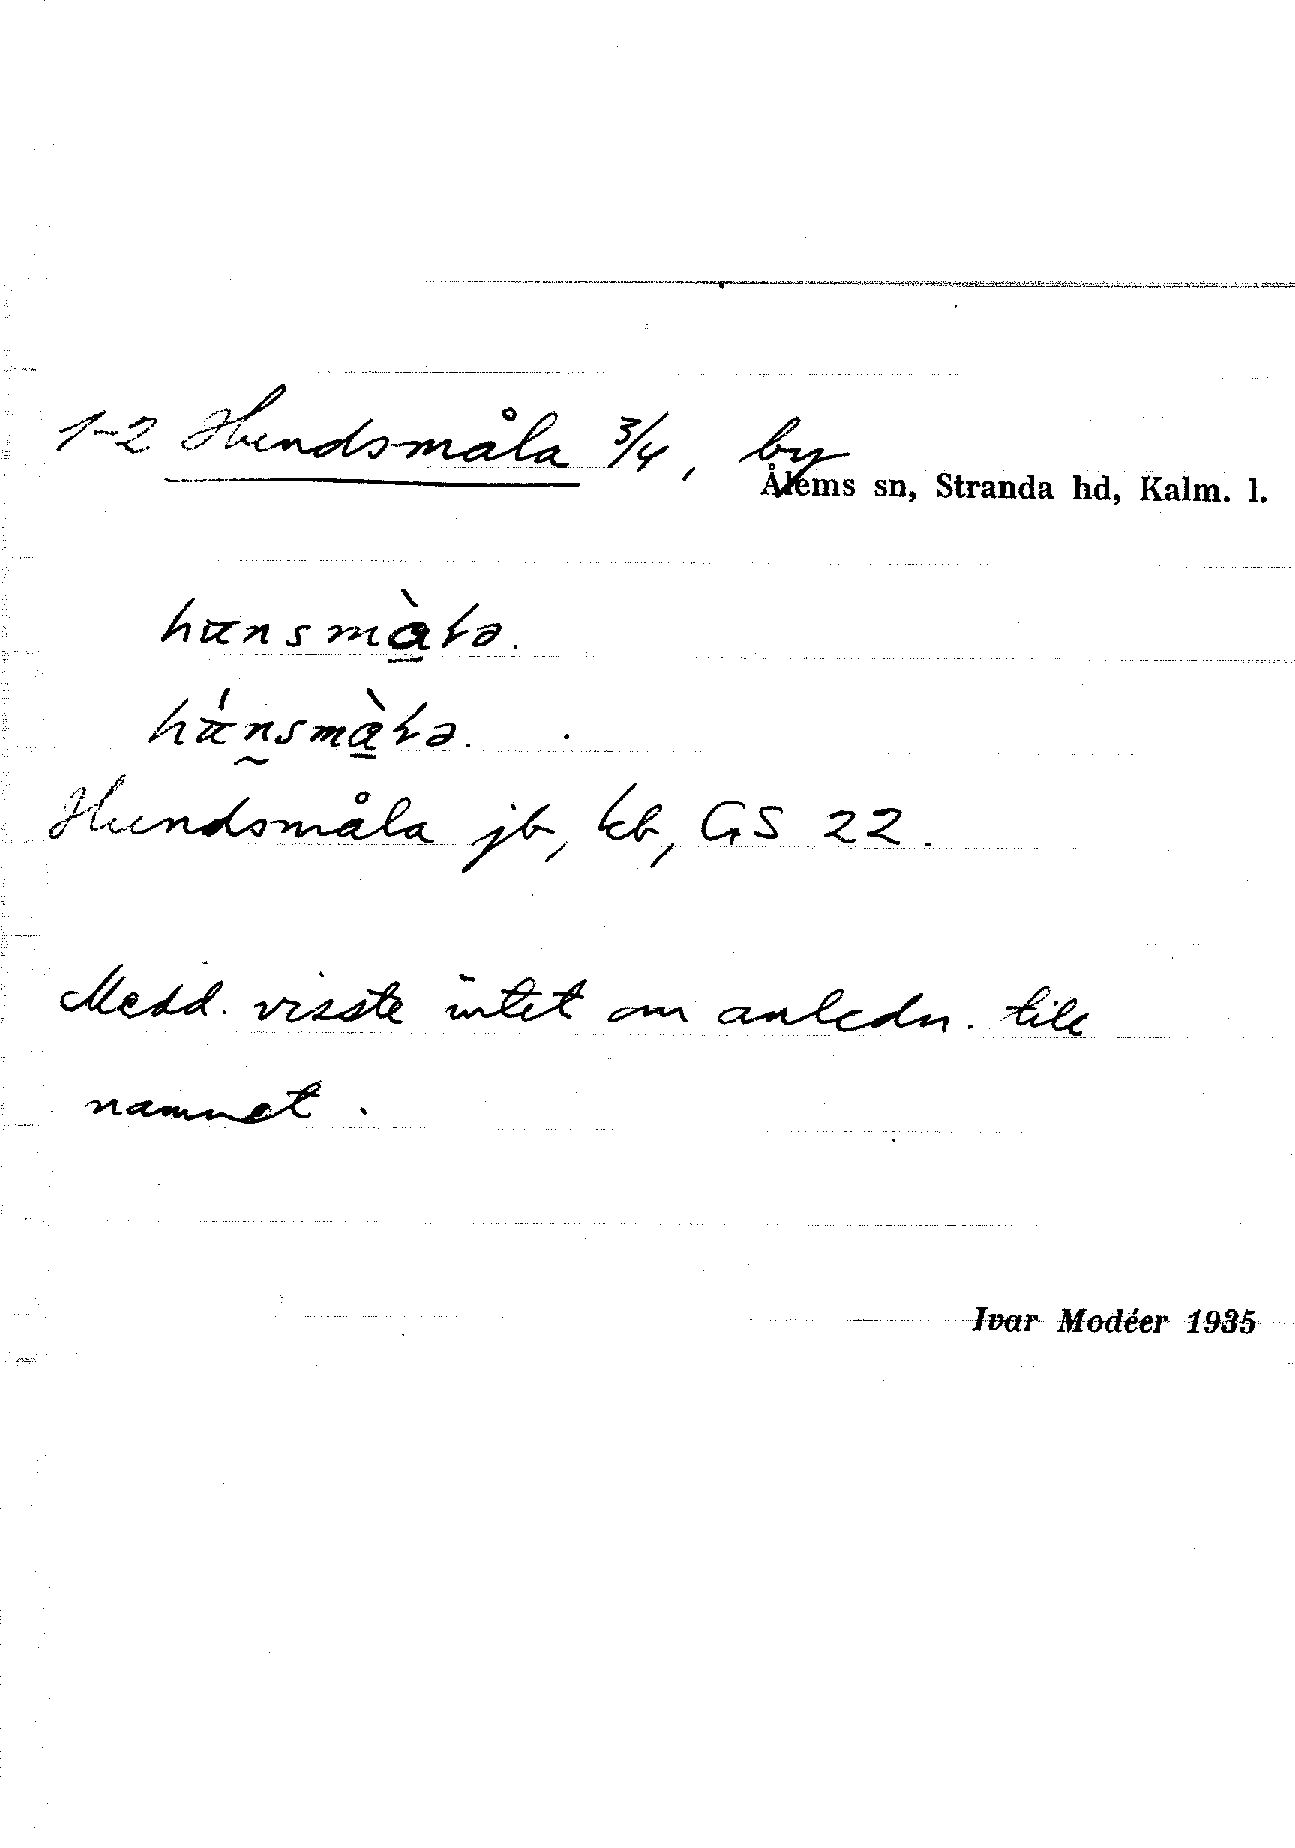 1-2 Hundsmåla 3/4, by
Ålems sn, Stranda hd, Kalm. l.
Hundsmåla jb, kb, GS 22.
Medd. visste intet om anledn. till
namnet.
Ivar Modéer 1935